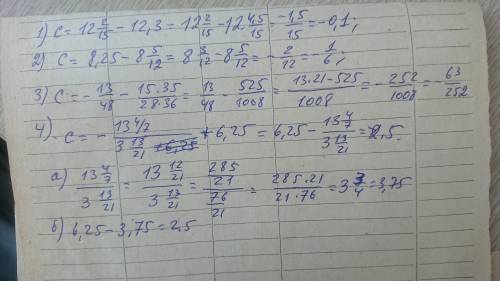 1) C = 12 2/15 - 12,3 = 12 2/15 - 12 4,5/15 = -1,5/15 = -0,1;
2) C = 8,25 - 8 5/12 = 8 3/12 - 8 5/12 = -2/12 = -1/6;
3) C = -13/48 - 15.35/28.36 = 13/48 - 525/1008 = 13.21-525/1008 = -252/1008 = -63/252
4) -C = - 13 4/7 / 3 13/21 + 6,25 = 6,25 - 13 4/7 / 3 13/21 = 2,5.
а) 13 4/7 / 3 13/21 = 13 12/21 / 3 13/21 = 285/21 / 76/21 = 285.21/21.76 = 3 3/4 = 3,75
б) 6,25 - 3,75 = 2,5